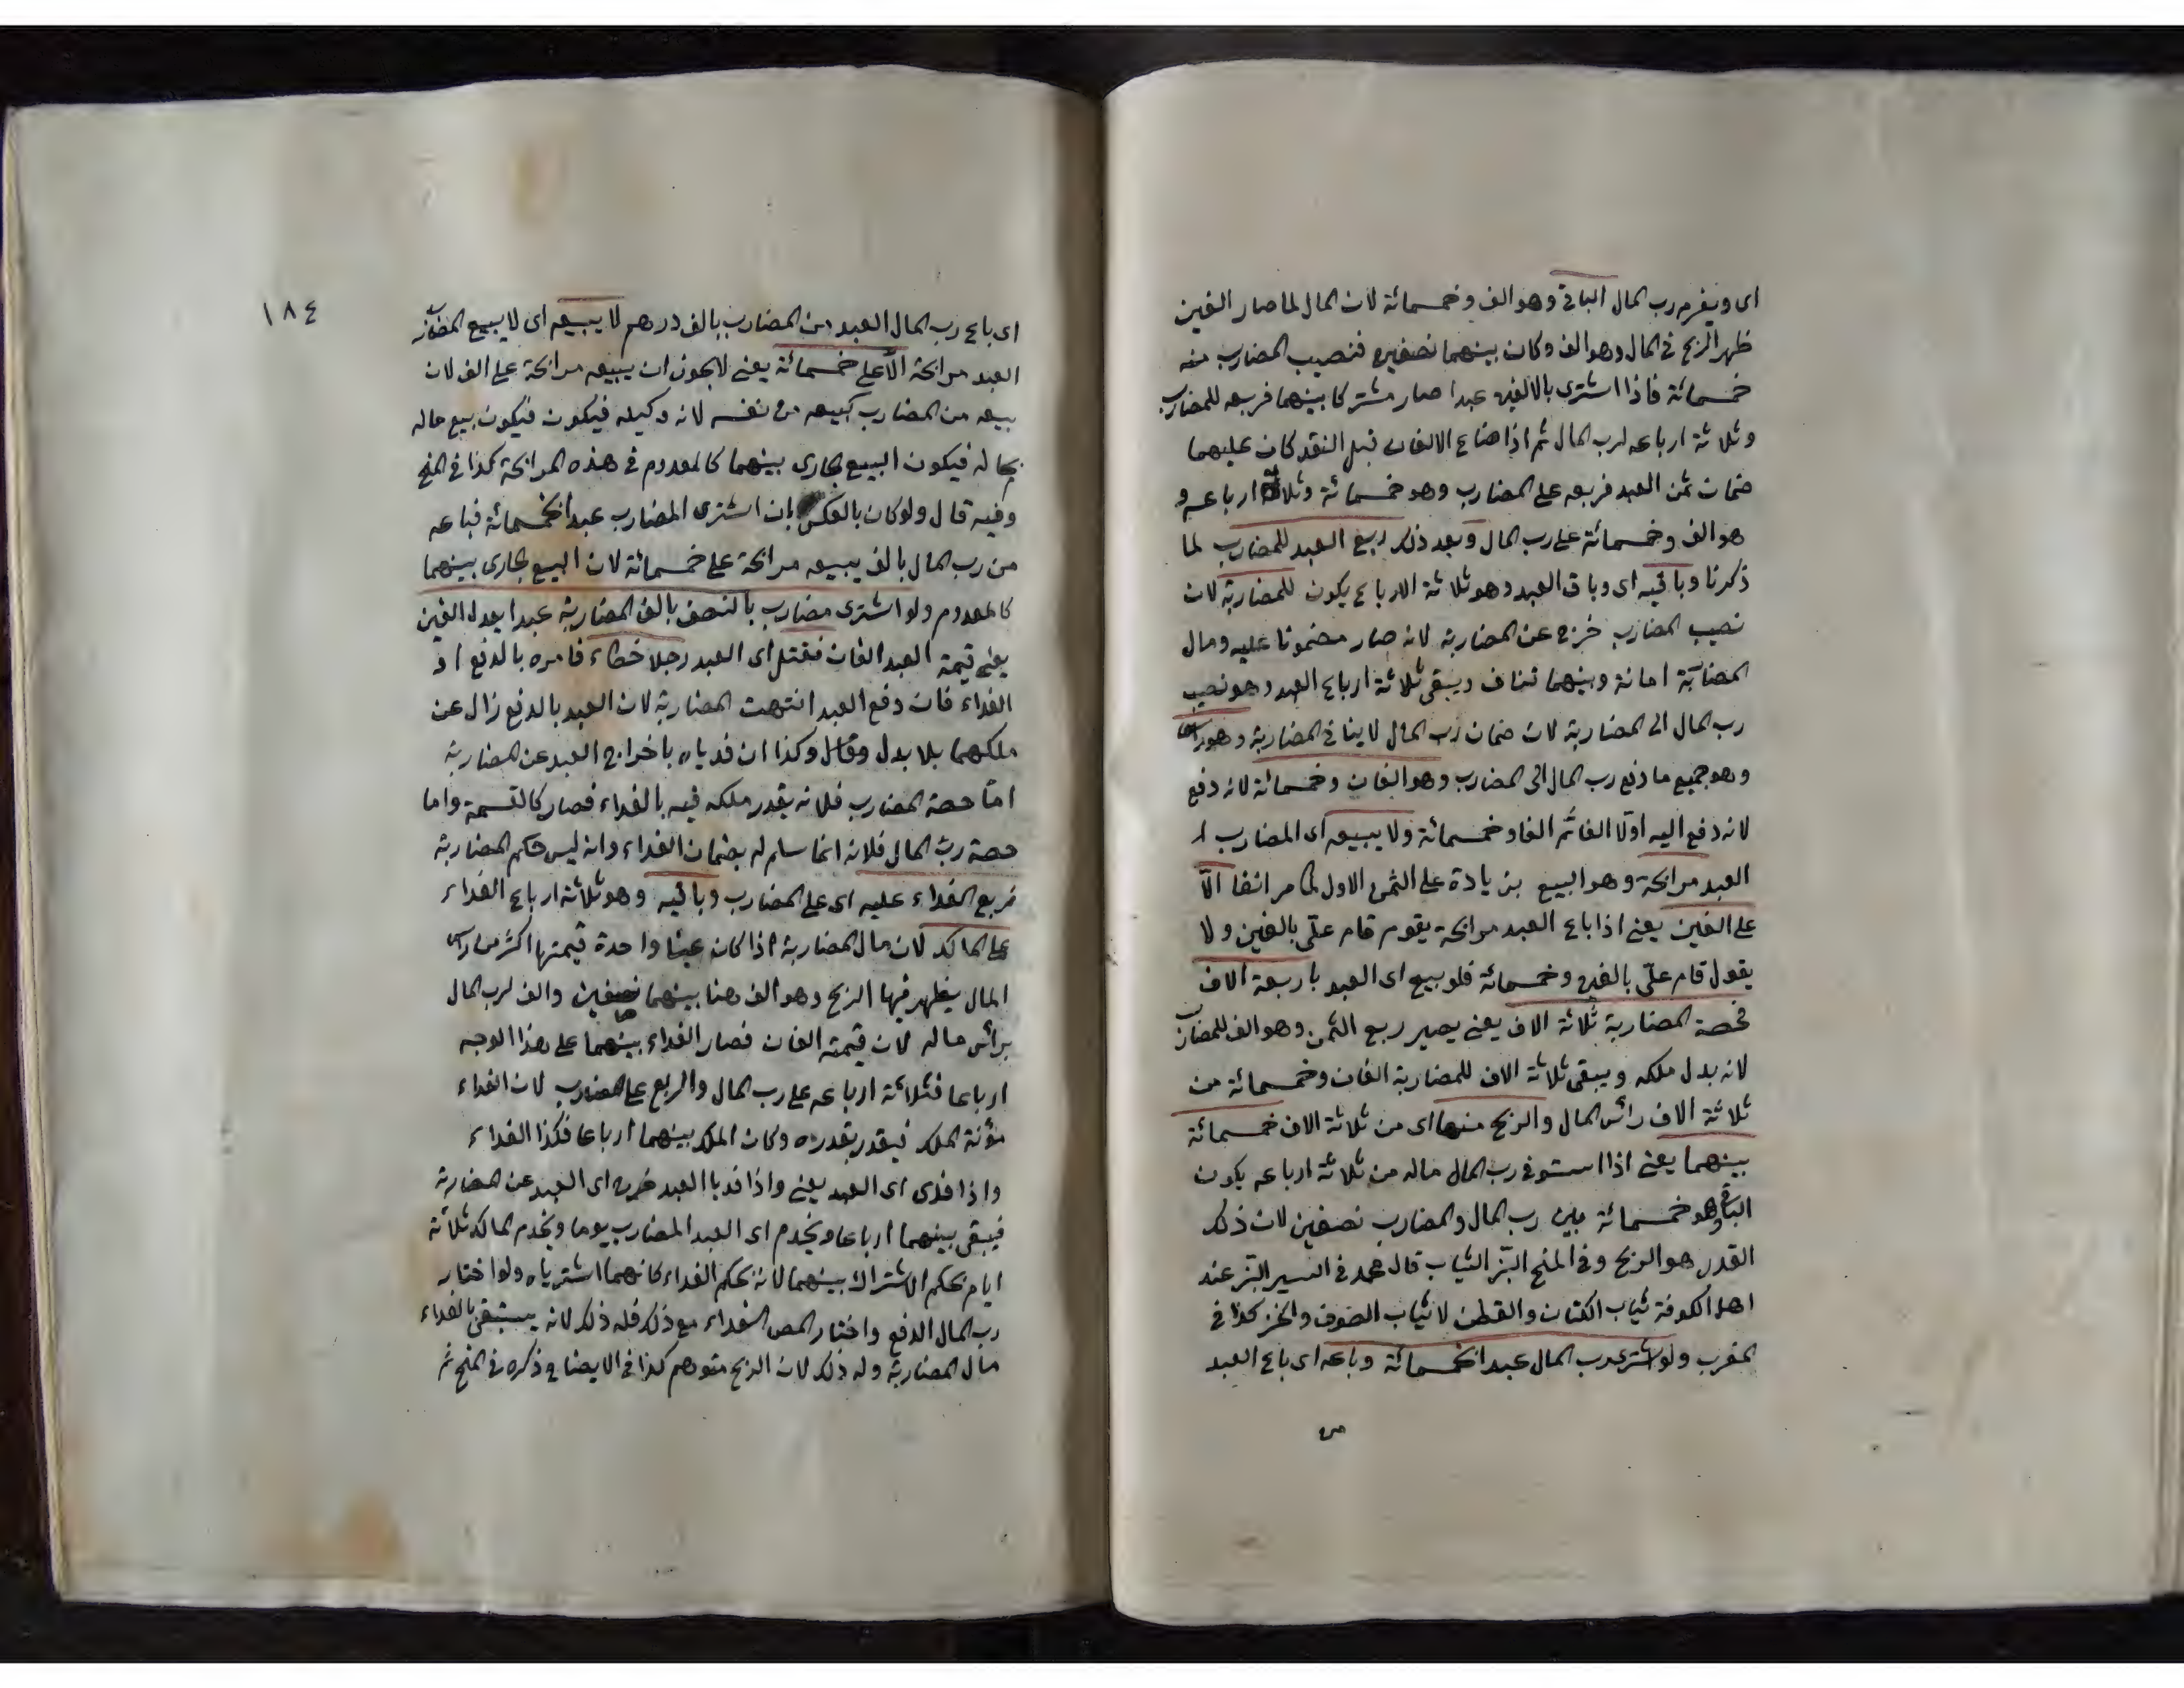 اى ويغرم رب المال الباقى وهو الف وخمسمائة لان المال لما صار الفين
ظهر الربح فى المال وهو الف وكان بينهما نصفين فنصيب المضارب منه
خمسمائة فاذا اشترى بالالفين عبدا صار مشتركا بينهما فربعه للمضارب
وثلاثة ارباعه لرب المال ثم اذا ضاع الالفان قبل النقد كان عليهما
ضمان ثمن العبد فربعه على المضارب وهو خمسمائة وثلاثة ارباعه و
هو الف وخمسمائة على رب المال وبعد ذلك ربع العبد للمضارب لما
ذكرنا وباقيه اى وباقى العبد وهو ثلاثة الارباع يكون للمضاربة لان
نصيب المضارب خرج عن المضاربة لانه صار مضمونا عليه ومال
المضاربة امانة وبينهما تناف ويبقى ثلاثة ارباع العبد وهو نصيب
رب المال الى المضاربة لان ضمان رب المال لا ينافى المضاربة وهو
وهو جميع ما دفع رب المال الى المضارب وهو الفان وخمسمائة لانه دفع
لانه دفع اليه اولا الفا ثم الفا وخمسمائة ولا يبيعه اى المضارب ا
العبد مرابحة وهو البيع بزيادة على الثمن الاول لما مر انفا الا
على الفين يعنى اذا باع العبد مرابحة يقوم قام علىّ بالفين ولا
يقول قام علىّ بالفين وخمسمائة فلو بيع اى العبد باربعة الاف
فحصة المضاربة ثلاثة الاف يعنى يصير ربع الثمن وهو الف للمضارب
لانه بدل ملكه ويبقى ثلاثة الاف للمضاربة الفان وخمسمائة من
ثلاثة الاف رأس المال والربح منها اى من ثلاثة الاف خمسمائة
بينهما يعنى اذا استوفى رب المال ماله من ثلاثة ارباعه يكون
الباقى وهو خمسمائة بين رب المال والمضارب نصفين لان ذلك
القدر هو الربح وفى المنح البزّ الثياب قال محمد فى السير البزّ عند
اهل الكوفة ثياب الكتان والقطن لا ثياب الصوف والخز كذا فى
المغرب ولو اشترى رب المال عبدا بخمسمائة وباعه اى باع العبد
من
١٨٤
اى باع رب المال العبد من المضارب بالف درهم لا يبيعه اى لا يبيع المضارب
العبد مرابحة الا على خمسمائة يعنى لا يجوز ان يبيعه مرابحة على الف لان
بيعه من المضارب كبيعه من نفسه لانه وكيله فيكون فيكون بيع ماله
بماله فيكون البيع الجارى بينهما كالمعدوم فى هذه المرابحة كذا فى المنح
وفيه قال ولو كان بالعكس بان اشترى المضارب عبدا بخمسمائة فباعه
من رب المال بالف يبيعه مرابحة على خمسمائة لان البيع الجارى بينهما
كالمعدوم ولو اشترى مضارب بالنصف بالف المضاربة عبدا يعدل الفين
يعنى قيمة العبد الفان فقتل اى العبد رجلا خطاء فامره بالدفع او
الفداء فان دفع العبد انتهت المضاربة لان العبد بالدفع زال عن
ملكهما بلا بدل وقال وكذا ان فدياه باخراج العبد عن المضاربة
امّا حصة المضارب فلانه يقدر ملكه فيه بالفداء فصار كالقسمة واما
حصة رب المال فلانه انما سلم له بضمان الفداء وانه ليس حكم المضاربة
فربع الفداء عليه اى على المضارب وباقيه وهو ثلاثة ارباع الفداء
على المالك لان مال المضاربة اذا كان عينا واحدة قيمتها اكثر من راس
المال يظهر فيها الربح وهو الف هنا بينهما نصفين والف لرب المال
برأس ماله لان قيمته الفان فصار الفداء بينهما على هذا الوجه
ارباعا فثلاثة ارباعه على رب المال والربع على المضارب لان الفداء
مؤنة الملك فيقدر بقدره وكان الملك بينهما ارباعا فكذا الفداء
واذا فدى اى العبد يعنى واذا فديا العبد خرج اى العبد عن المضاربة
فيبقى بينهما ارباعا ويخدم اى العبد المضارب يوما ويخدم المالك ثلاثة
ايام بحكم الاشتراك بينهما لانه بحكم الفداء كانهما اشترياه ولو اختار
رب المال الدفع واختار المض الفداء مع ذلك فله ذلك لانه يستبقى بالفداء
مال المضاربة وله ذلك لان الربح متوهم كذا فى الايضاح ذكره فى المنح ثم